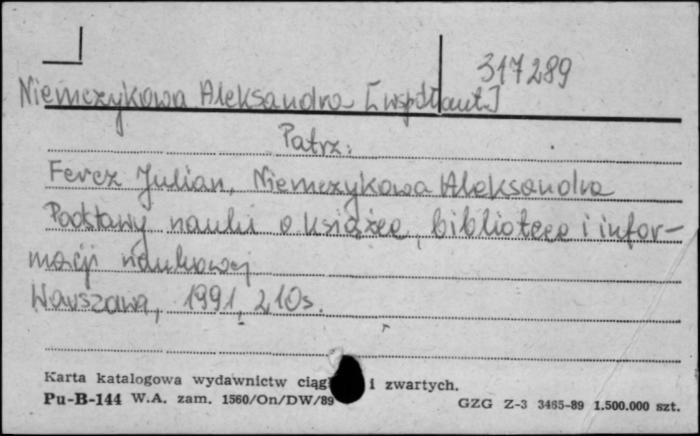 317289
Niemczykowa Aleksandra [współaut.]
Patrz:
Fercz Julian, Niemczykowa Aleksandra
Podstawy nauki o książce, bibliotece i infor-
macji naukowej
Warszawa, 1991, 210s.
Karta katalogowa wydawnictw ciąg i zwartych.
Pu-B-144 W.A. zam. 1560/On/DW/89 GZG Z-3 3465-89 1.500.000 szt.